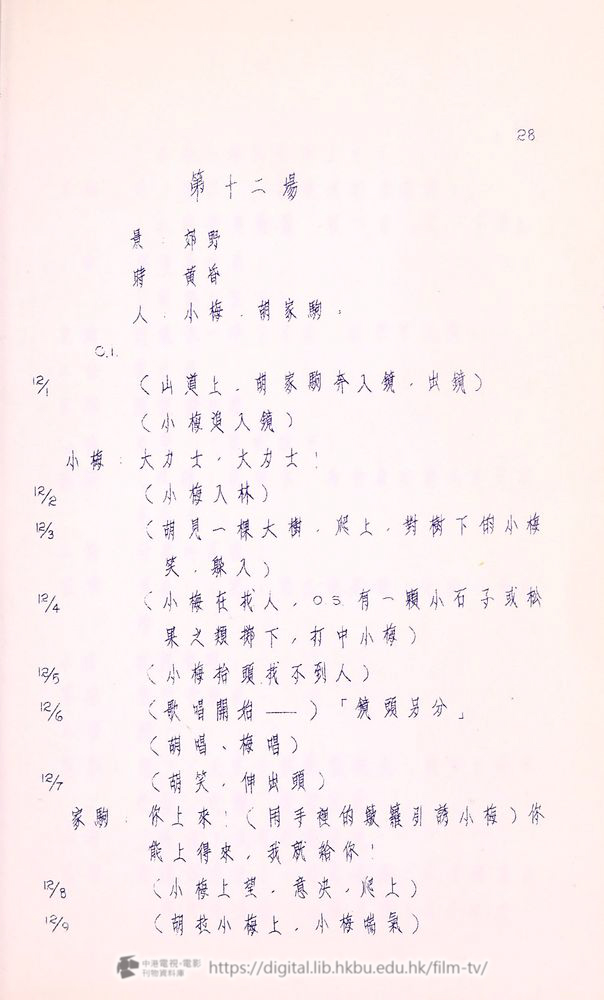 28
第十二場
景：郊野
時 黃昏
人．小梅．胡家駒。
C.I.
12/1 （山道上，胡家駒奔入鏡，出鏡）
（小梅追入鏡）
小梅：大力士，大力士！
12/2 （小梅入林）
12/3 （胡見一棵大樹，爬上，對樹下的小梅
笑，躲入）
12/4 （小梅在找人，OS有一顆小石子或松
果之類擲下，打中小梅）
12/5 （小梅抬頭找不到人）
12/6 （歌唱開始——）「鏡頭另分」
（胡唱、梅唱）
12/7 （胡笑，伸出頭）
家駒：你上來！（用手裡的 引誘小梅）你
能上得來，我就給你！
12/8 （小梅上望，意決，爬上）
12/9 （胡拉小梅上，小梅喘氣）
中港電視·電影
刊物資料庫
https://digital.lib.hkbu.edu.hk/film-tv/